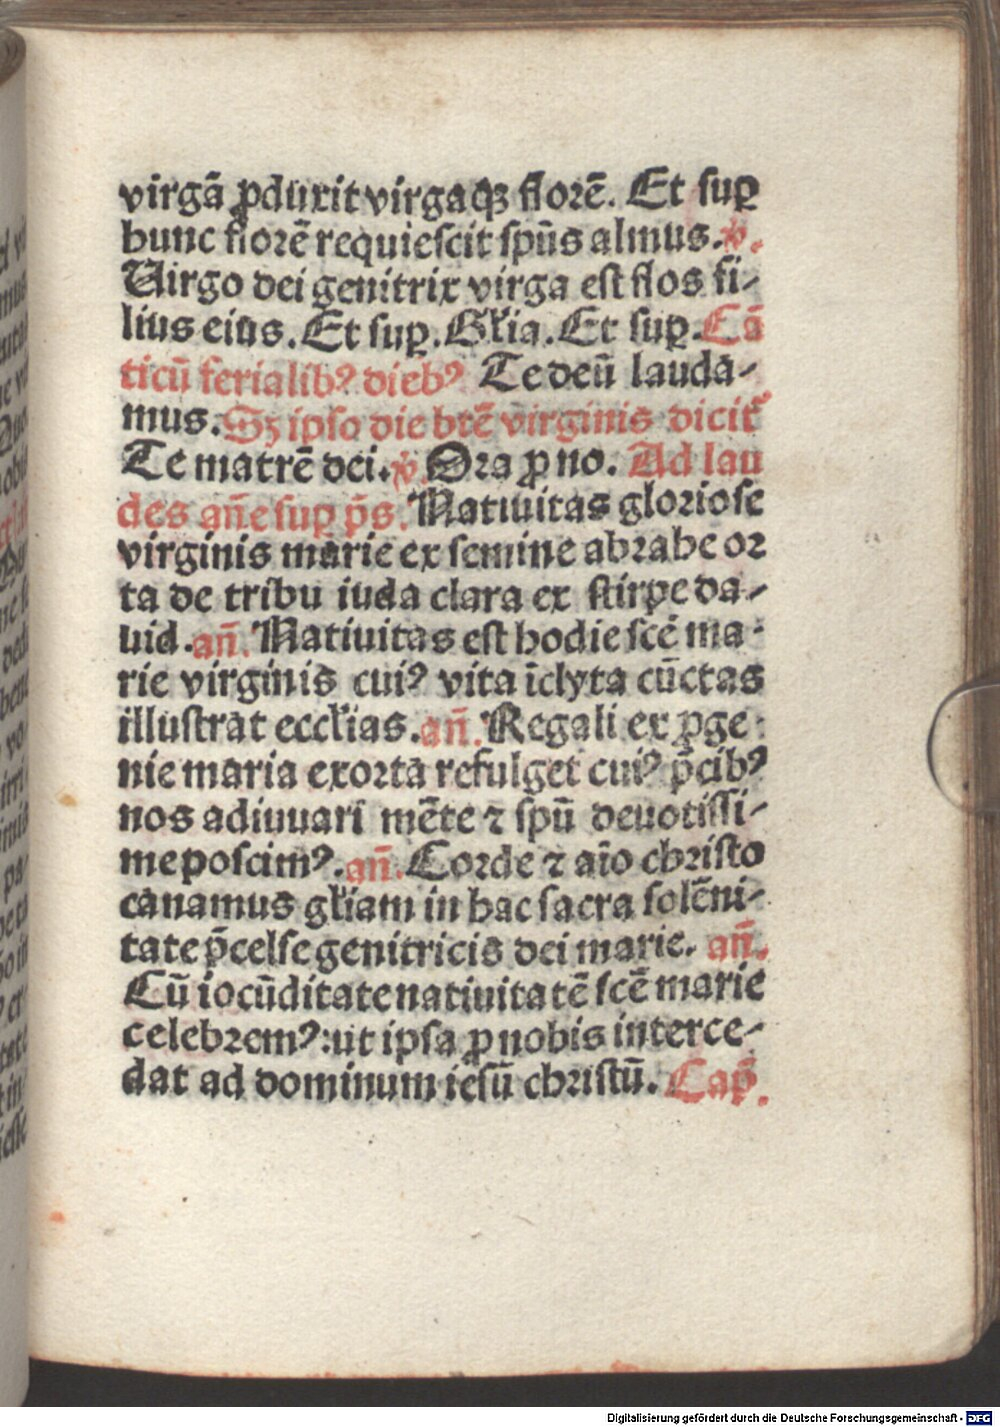 virgā ꝓduxit virgaqꝫ florē. Et suꝑ
hunc florē requiescit spūs almus. ℣.
Uirgo dei genitrix virga est flos fi⸗
lius eius. Et suꝑ. Gl̄ia. Et suꝑ. Cā
ticū ferialibꝰ diebꝰ Te deū lauda⸗
mus. Sꝫ ipso die btē virginis dicit᷑
Te matrē dei. ℣. Ora ꝓ no. Ad lau
des añe suꝑ p̄s. Natiuitas gloriose
virginis marie ex semine abrahe or
ta de tribu iuda clara ex stirpe da⸗
uid. añ. Natiuitas est hodie scē ma⸗
rie virginis cuiꝰ vita īclyta cūctas
illustrat eccl̄ias. añ. Regali ex ꝓge⸗
nie maria exorta refulget cuiꝰ p̄cibꝰ
nos adiuuari mēte ⁊ spū deuotissi⸗
me poscimꝰ. añ. Corde ⁊ aīo christo
canamus gl̄iam in hac sacra solēni⸗
tate p̄celse genitricis dei marie. añ.
Cū iocūditate natiuitatē scē marie
celebremꝰ: ut ipsa ꝓ nobis interce⸗
dat ad dominum iesū christū. Cap̄.
Digitalisierung gefördert durch die Deutsche Forschungsgemeinschaft - DFG